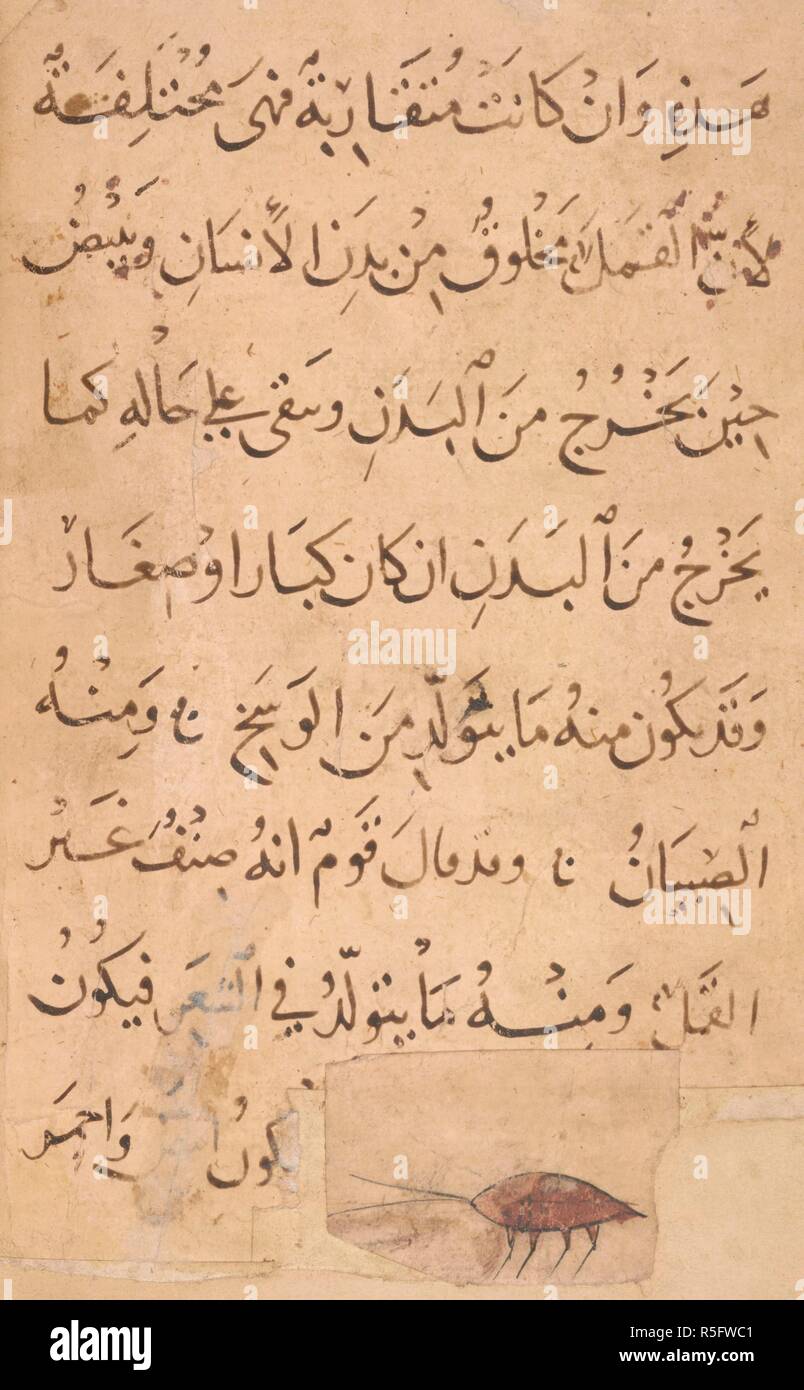 هَذِهِ وَانْ كَانَتْ مُتَقَارِبَةٌ فهِىَ مُخْتَلِفَةٌ
لأن القَمل مَخْلُوقٌ مِنْ بدَنِ الأنسَانِ وَيَبِيضُ
حِيْنَ يَخْرُجُ مِنَ الْبَدَنِ وسقى على حَالهِ كما
يَخْرُجُ مِنَ الْبَدَنِ ان كان كبَارا اوْ صِغَار
وَقَد يكُون مِنهُ مَا يتَوَلّدِ مِنَ الوَسَخِ وَمِنْهُ
الصِّيبَانُ وقد قال قَومٌ انهُ صِنْفٌ غَيْرُ
القَمل وَمِنْهُ مَا يتَولّدُ في الشعَرِ فيكُونُ
كونُ وَاحمَر
alamy
a
alamy
Image ID: R5FWC1
www.alamy.com